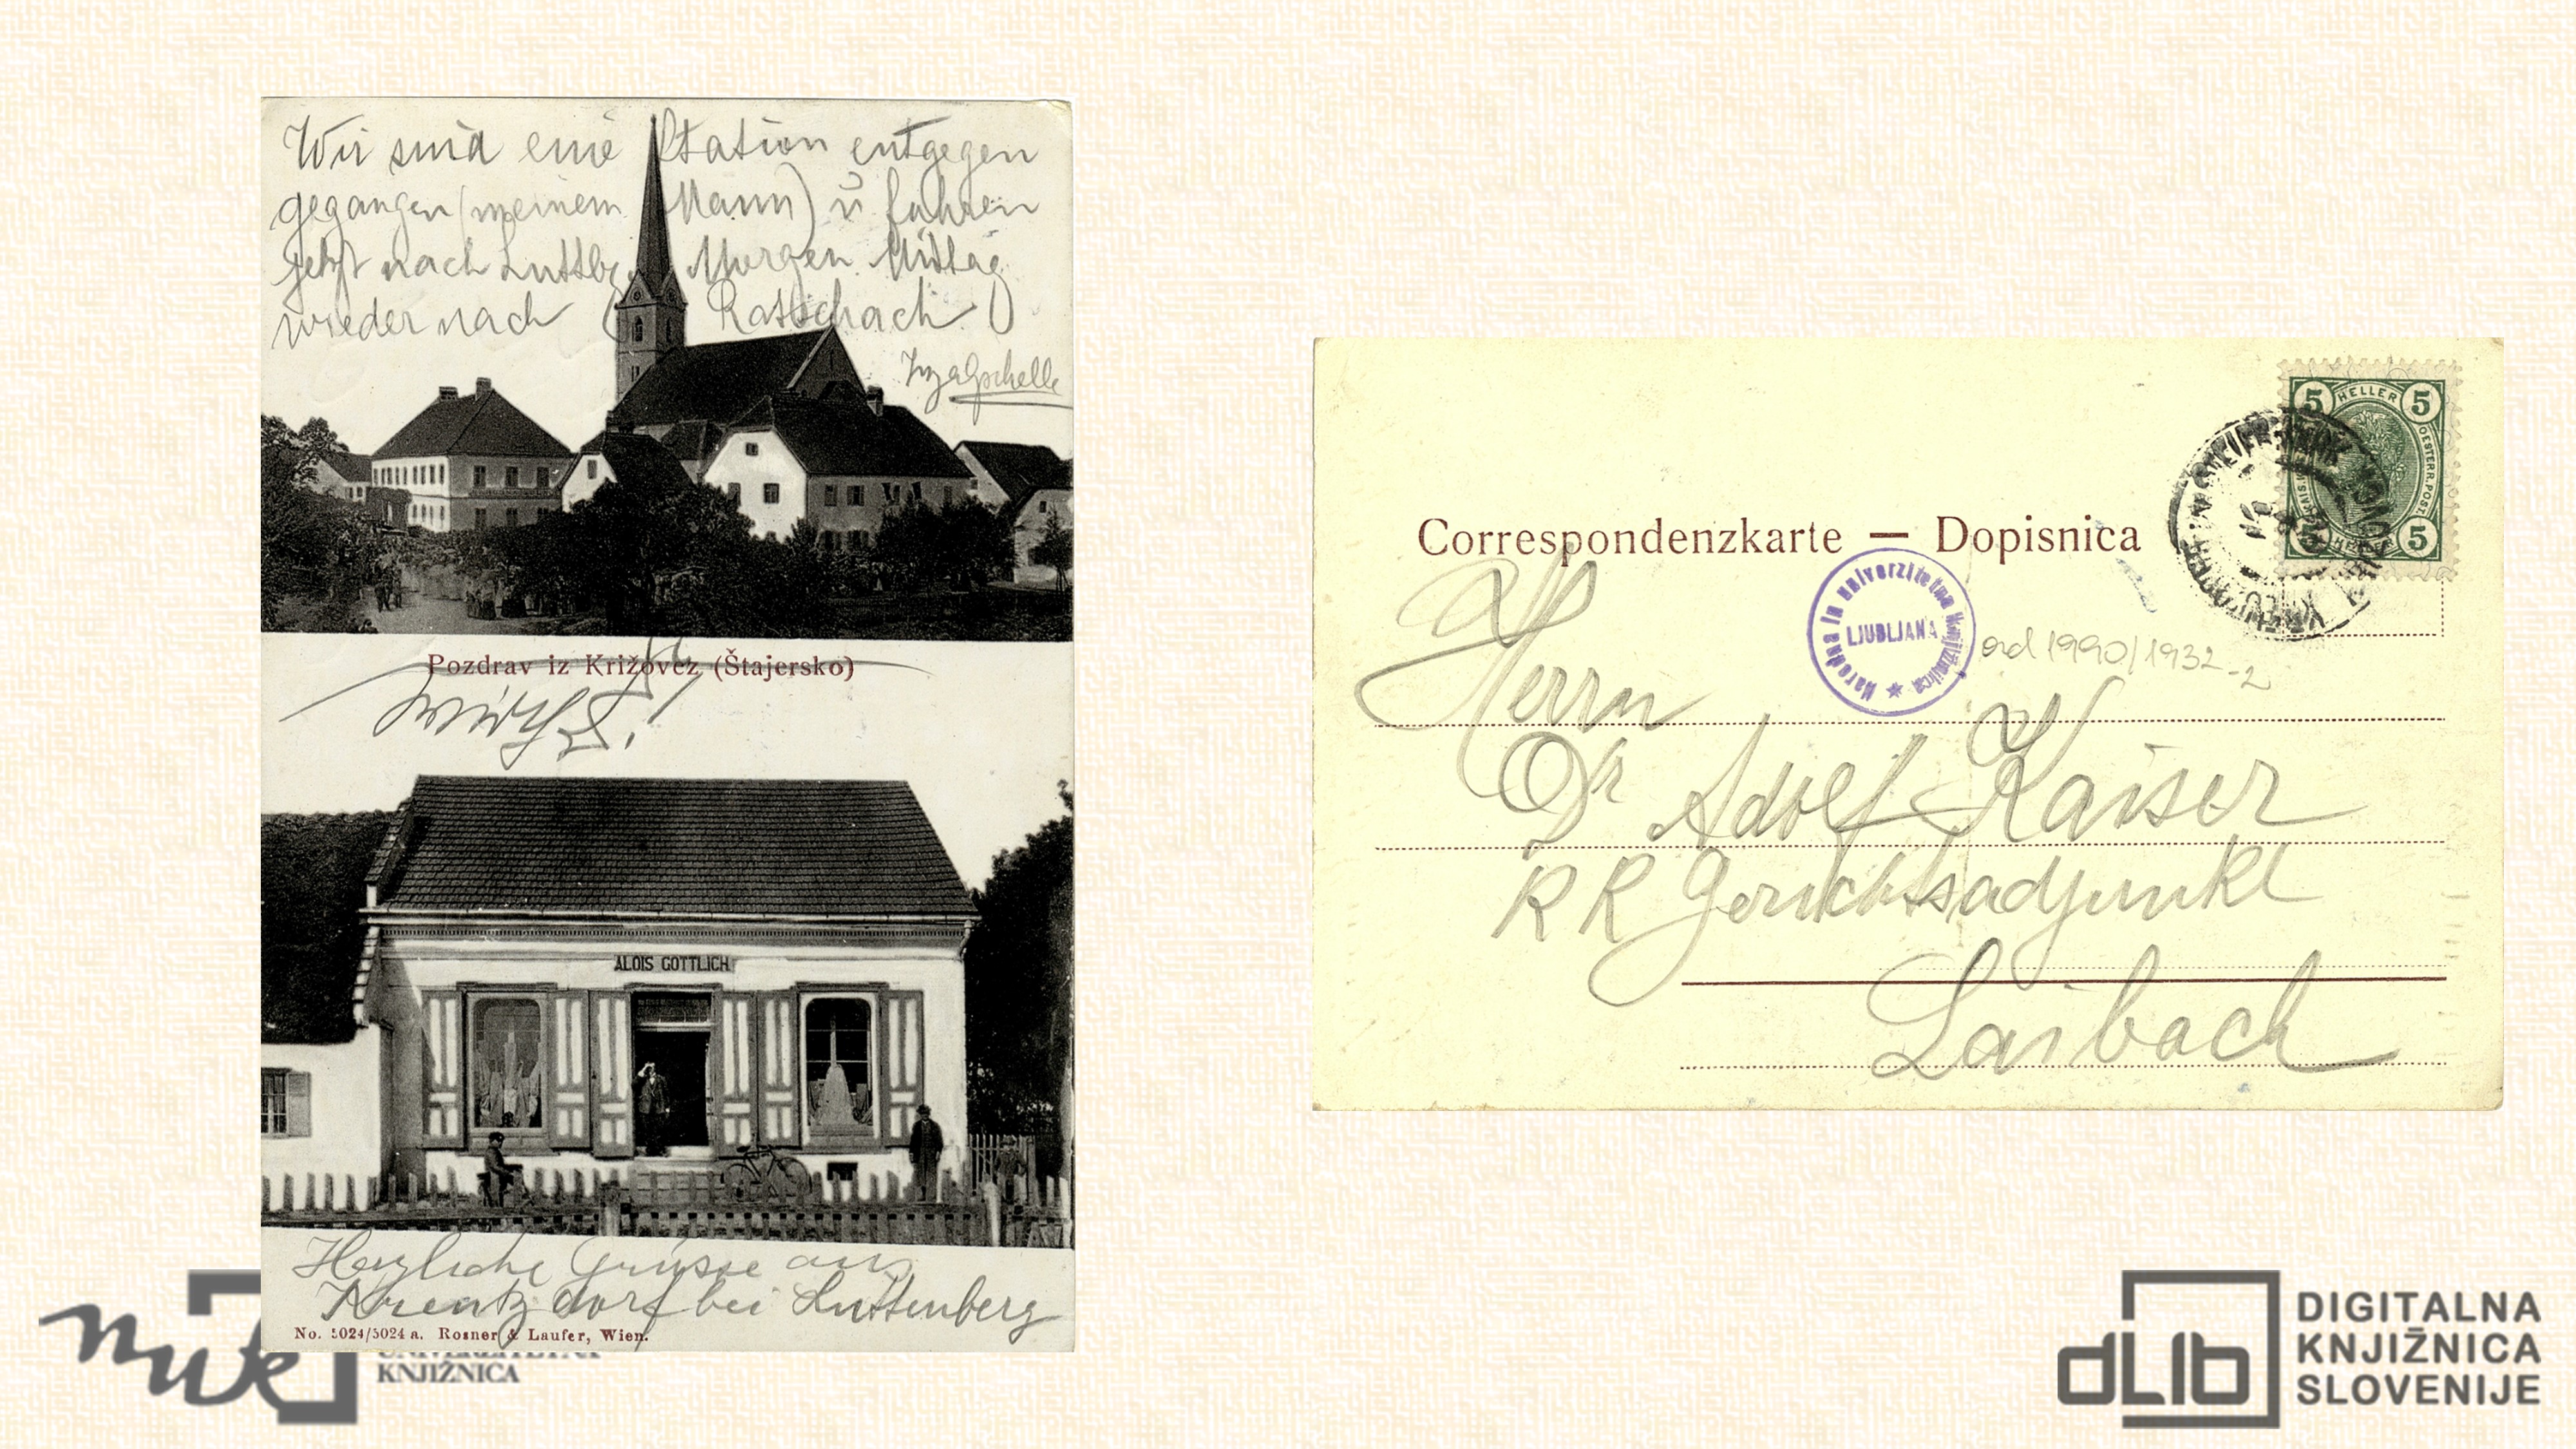 Wir sind eine Station entgegen
gegangen (meinem Mann) u fahren
jetzt nach Luttbg. Morgen Mittag
wieder nach Ratschach
Pozdrav iz Križovez (Štajersko)
ALOIS GOTTLICH
Herzliche Grüsse aus
Kreutzdorf bei Luttenberg
No. 5024/5024 a. Rosner & Laufer, Wien.
KNJIŽNICA
5 HELLER 5
5 5
Correspondenzkarte — Dopisnica
Narodna in univerzitetna knjižnica
LJUBLJANA
ord 1990/1932-2
Herrn
Dr Adolf Kaiser
K K Gerichtsadjunkt
Laibach
dLib
DIGITALNA
KNJIŽNICA
SLOVENIJE